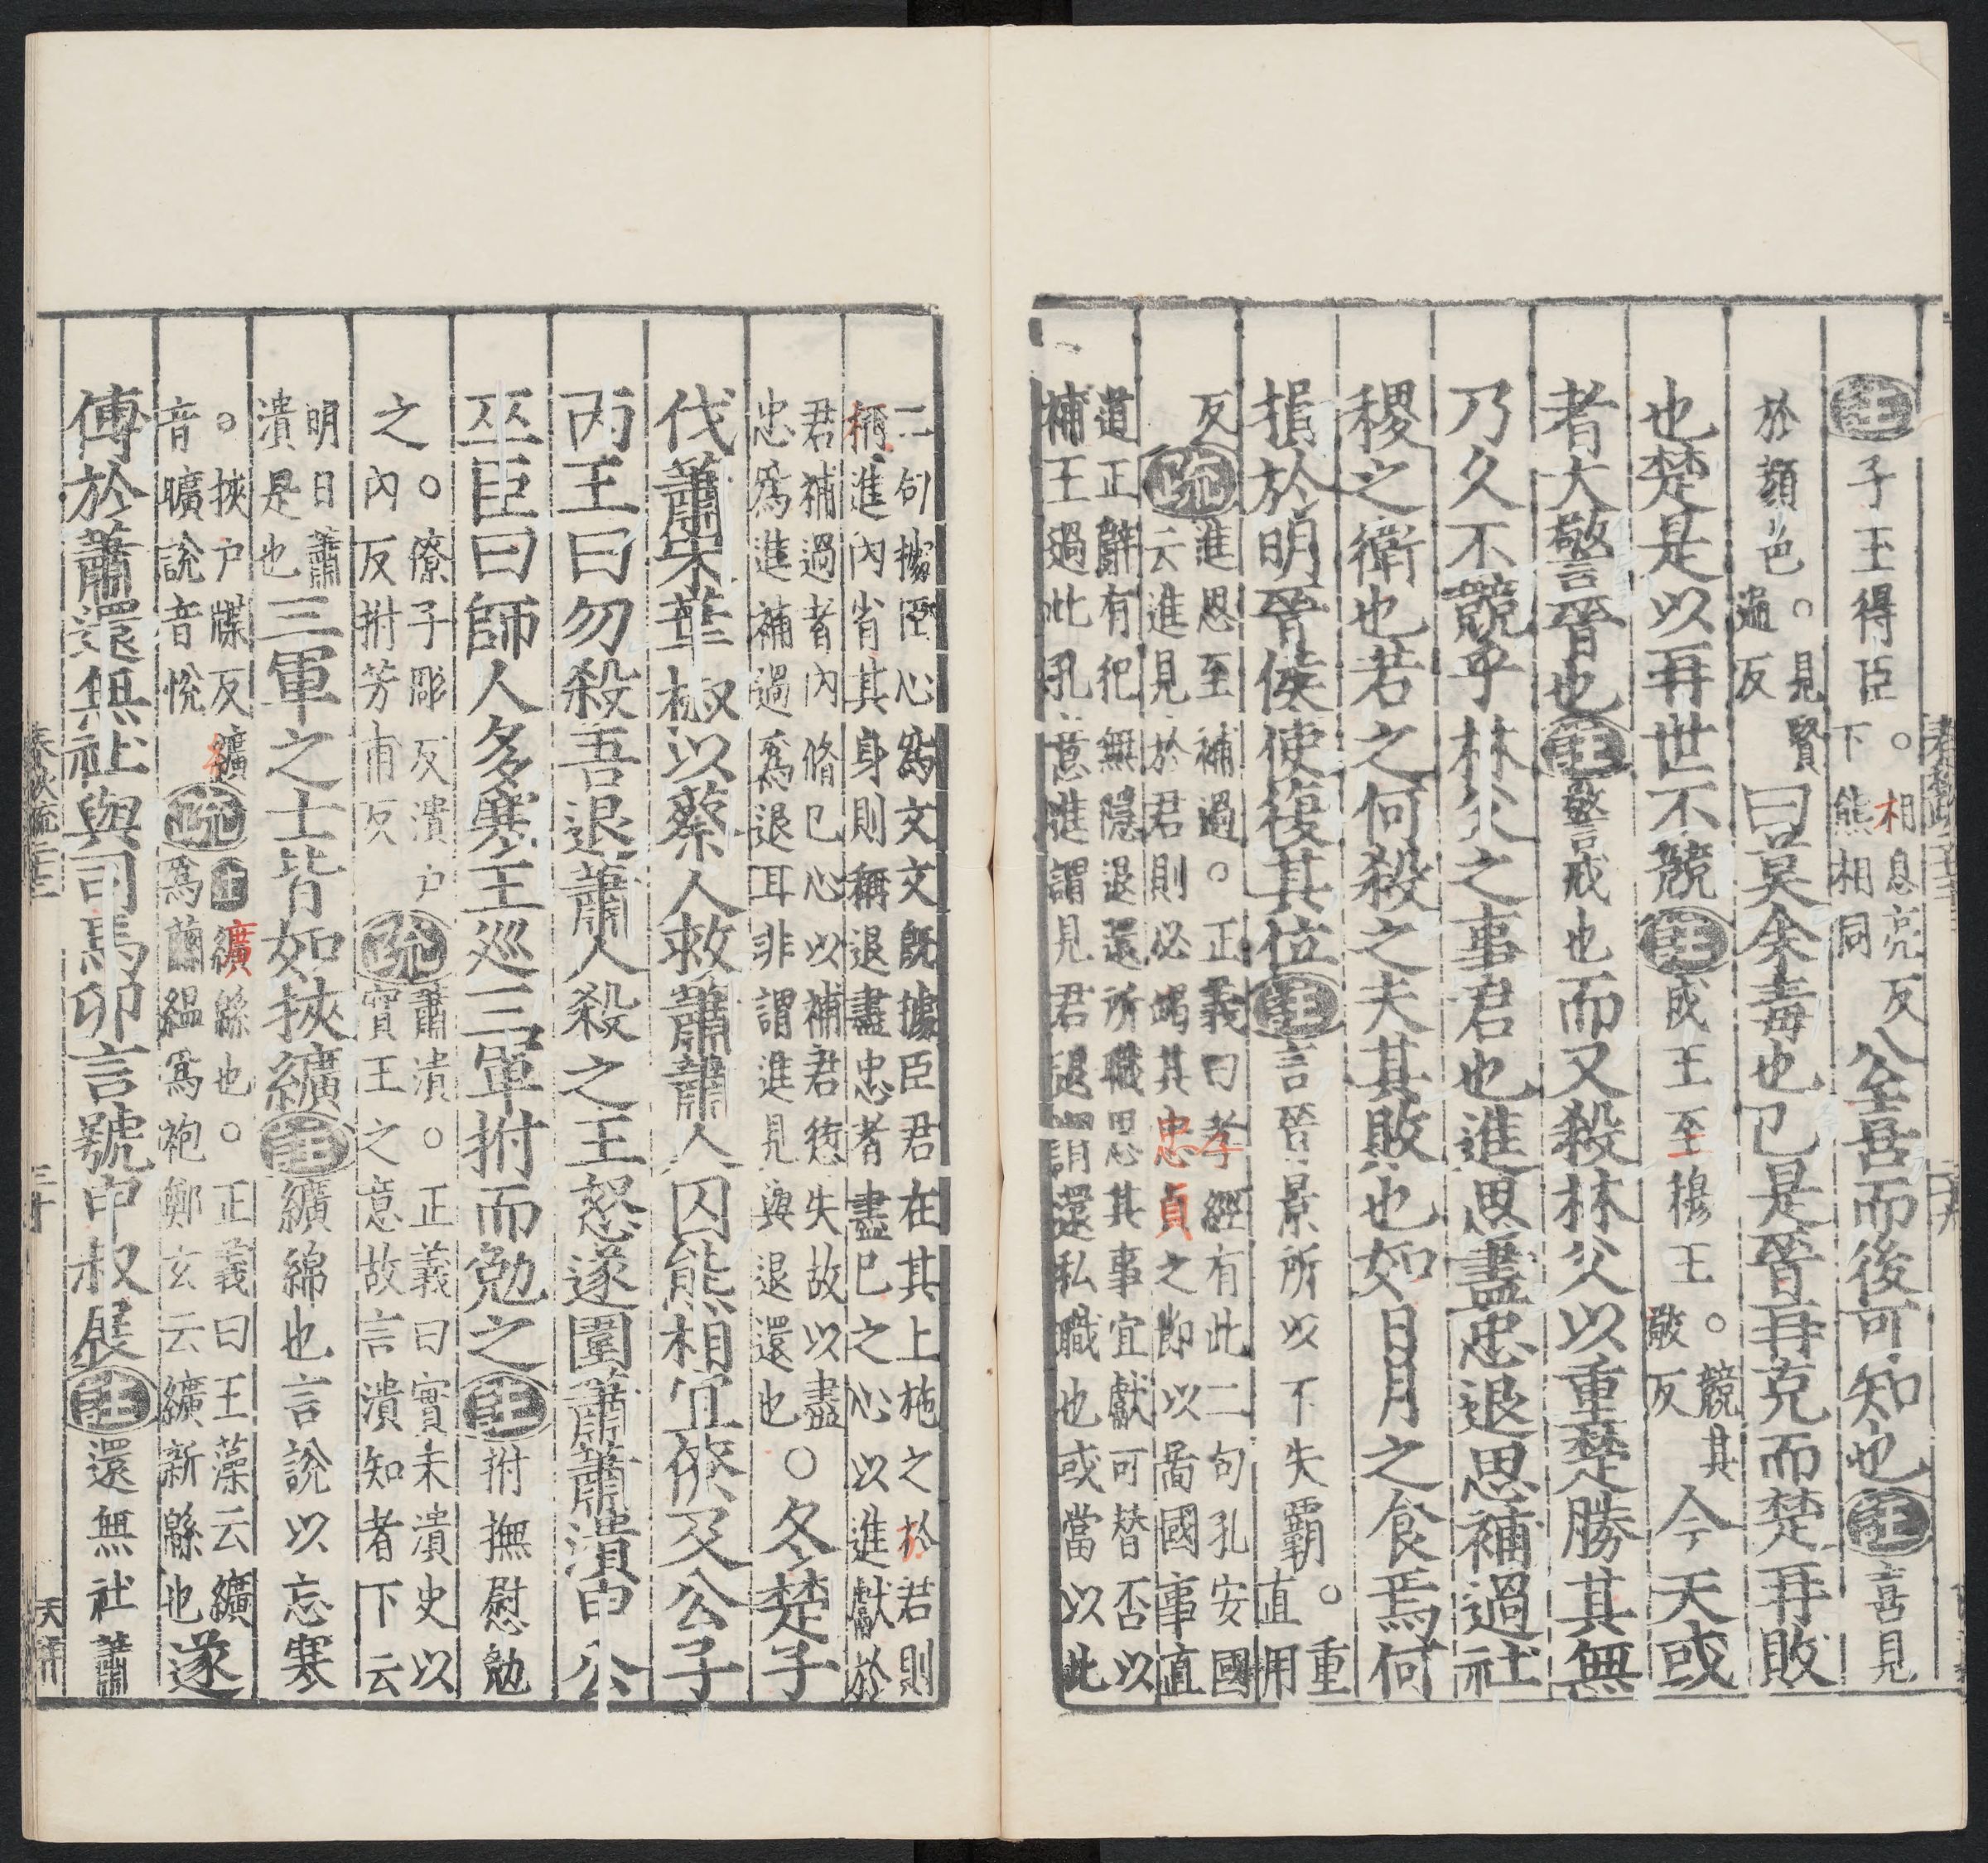 註子玉得臣。相息亮反下熊相同公至喜而後可知也註喜見
於顏色。見賢遍反曰莫余毒也已是晉再克而楚再敗
也楚是以再世不競註成王至穆王。競其敬反今天或
者大警晉也註警戒也而又殺林父以重楚勝其無
乃久不競乎林父之事君也進思盡忠退思補過社
稷之衛也若之何殺之夫其敗也如日月之食焉何
損於明晉侯使復其位註言晉景所以不失霸。重直用
反疏進思至補過。正義曰孝經有此二句孔安國
云進見於君則必竭其忠貞之節以圖國事直
道正辭有犯無隱退還所職思其事宜獻可替否以
補王過此孔意進謂見君退謂還私職也或當以此
二句據臣心為文文既據臣君在其上施之於君則
稱進內省其身則稱退盡忠者盡已之心以進獻於
君補過者內脩已心以補君愆失故以盡
忠為進補過為退耳非謂進見與退還也〇冬楚子
伐蕭宋華椒以蔡人救蕭蕭人囚熊相宜僚及公子
丙王曰勿殺吾退蕭人殺之王怒遂圍蕭蕭潰申公
巫臣曰師人多寒王巡三軍拊而勉之註拊撫慰勉
之。僚子彫反潰戶內反拊芳甫反疏蕭潰。正義曰實未潰史以
實王之意故言潰知者下云
明日蕭潰是也三軍之士皆如挾纊註纊綿也言說以忘寒
。挾戶牒反纊音曠說音悅疏註纊緜也。正義曰王藻云纊
為繭縕為袍鄭玄云纊新緜也遂
傅於蕭還無社與司馬卯言號申叔展註還無社蕭